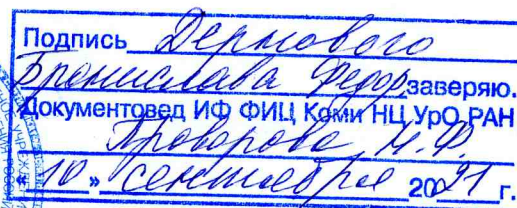 Подпись Дернового
Бронислава Федор заверяю.
Документовед ИФ ФИЦ Коми НЦ УрО РАН
Проворова И.Ф.
"10" сентября 2021 г.